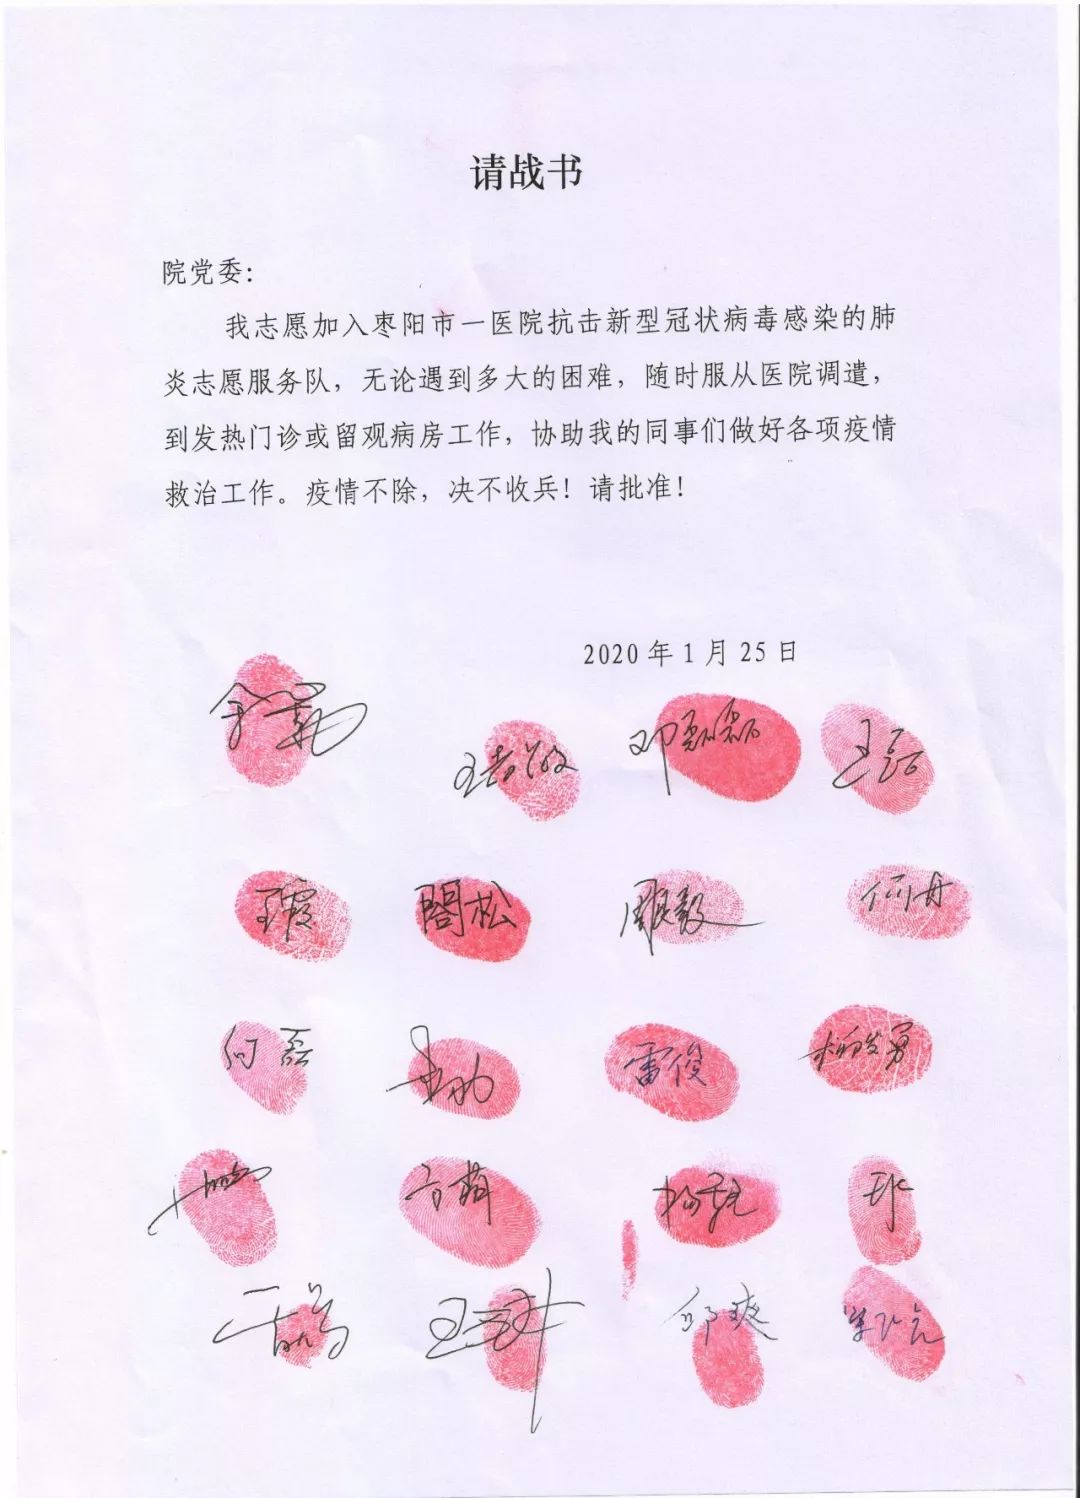 请战书
院党委：
我志愿加入枣阳市一医院抗击新型冠状病毒感染的肺
炎志愿服务队，无论遇到多大的困难，随时服从医院调遣，
到发热门诊或留观病房工作，协助我的同事们做好各项疫情
救治工作。疫情不除，决不收兵！请批准！
2020年1月25日
王磊
王霞 閤松 周毅 何丹
何磊 雷俊 杨发勇
邱爽